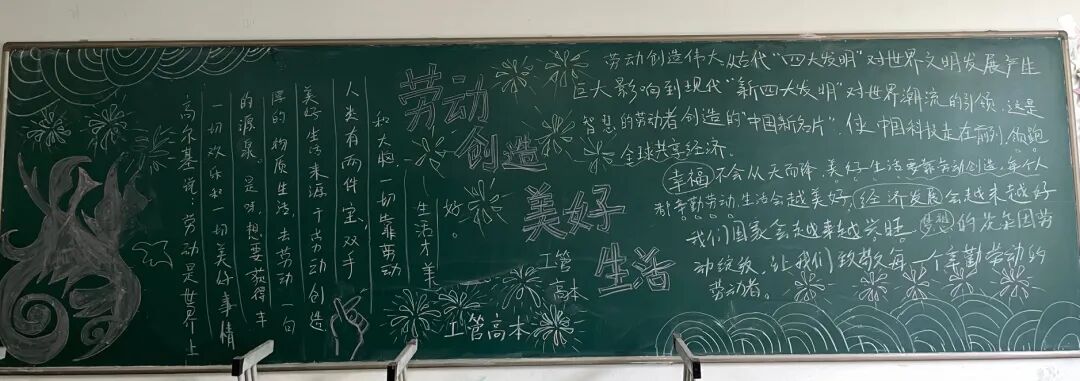 高尔基说:劳动是世界上
一切欢乐和一切美好事情
的源泉。是呀,想要获得丰
厚的物质生活,去劳动一句
美好生活来源于劳动创造
人类有两件宝,双手
和大脑一切靠劳动
生活才美
好。
劳动
创造
美好
生活
工管
高本
工管高本
劳动创造伟大从古代“四大发明”对世界文明发展产生
巨大影响到现代“新四大发明”对世界潮流的引领,这是
智慧的劳动者创造的“中国新名片”,使中国科技走在前列,领跑
全球共享经济。
幸福不会从天而降,美好生活要靠劳动创造,每个人
都辛勤劳动,生活会越美好,经济发展会越来越好
我们国家会越来越兴旺,梦想的花朵因劳
动绽放,让我们致敬每一个辛勤劳动的
劳动者。